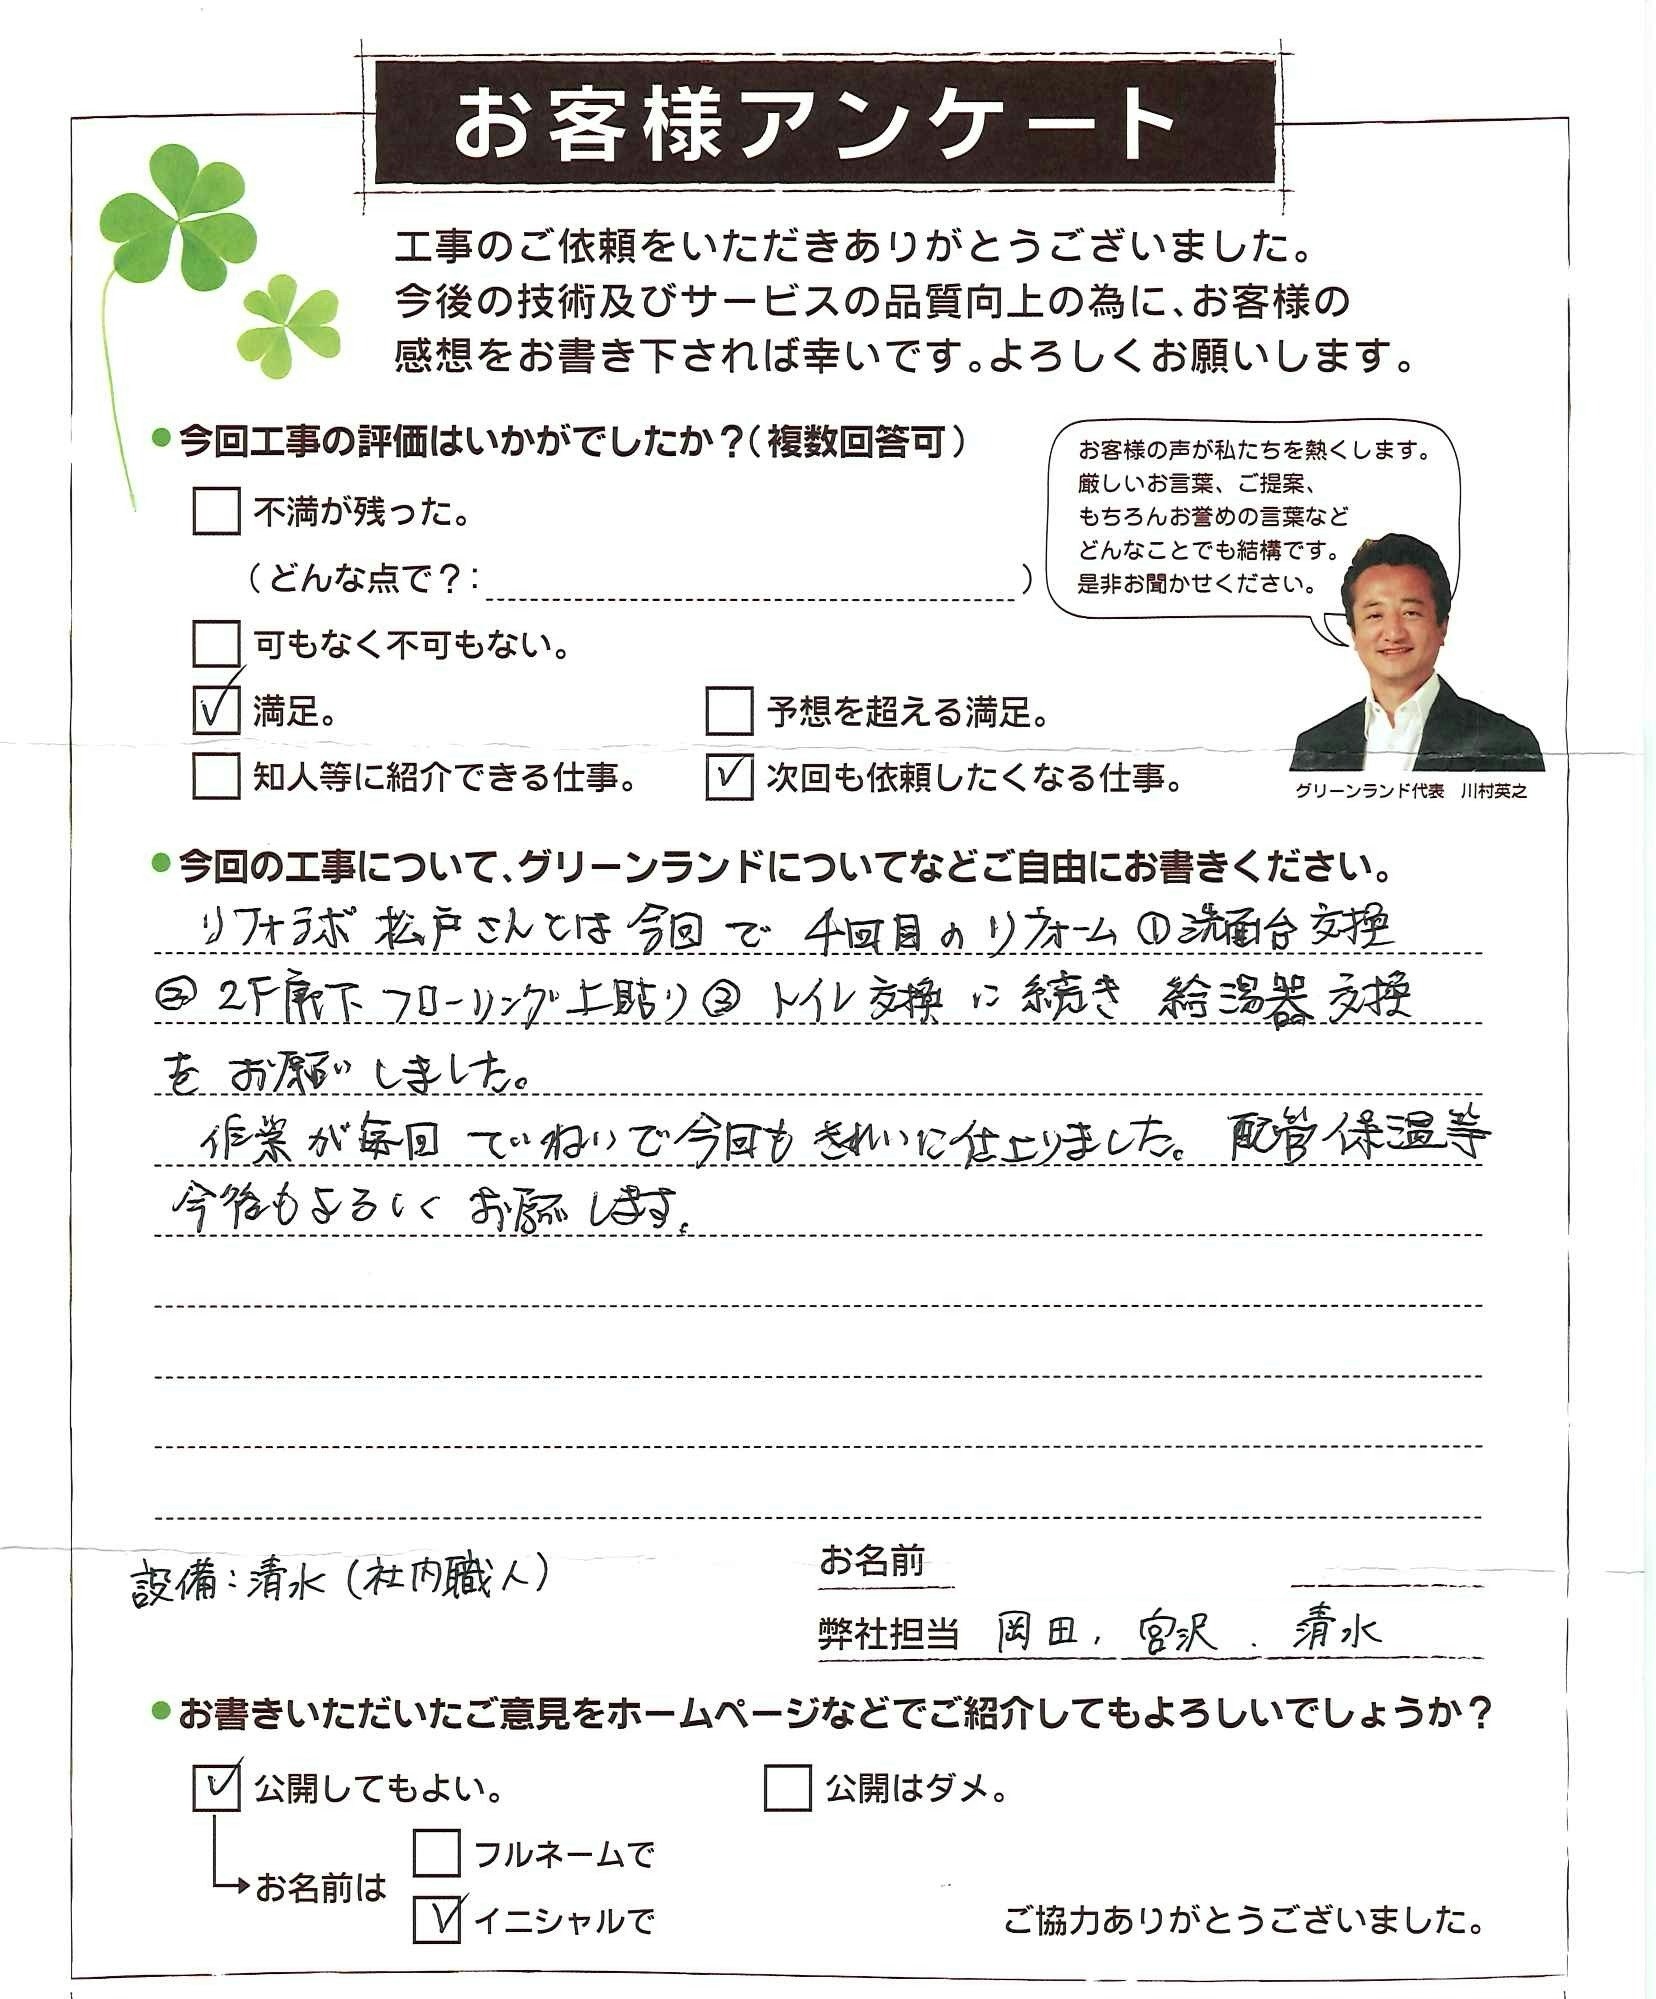 お客様アンケート
工事のご依頼をいただきありがとうございました。
今後の技術及びサービスの品質向上の為に、お客様の
感想をお書き下されば幸いです。よろしくお願いします。
●今回工事の評価はいかがでしたか？（複数回答可）
お客様の声が私たちを熱くします。
厳しいお言葉、ご提案、
もちろんお誉めの言葉など
どんなことでも結構です。
是非お聞かせください。
不満が残った。
（どんな点で？：　）
可もなく不可もない。
満足。
予想を超える満足。
知人等に紹介できる仕事。
次回も依頼したくなる仕事。
グリーンランド代表　川村英之
●今回の工事について、グリーンランドについてなどご自由にお書きください。
リフォラボ 松戸さんとは 今回で 4回目のリフォーム ①洗面台交換
② 2F廊下フローリング上貼り ③ トイレ交換に続き 給湯器交換
を お願いしました。
作業が毎回 ていねいで今回もきれいに仕上りました。配管保温等
今後もよろしく お願いします。
設備：清水（社内職人）
お名前
弊社担当 岡田, 宮沢. 清水
●お書きいただいたご意見をホームページなどでご紹介してもよろしいでしょうか？
公開してもよい。
公開はダメ。
フルネームで
お名前は
イニシャルで
ご協力ありがとうございました。